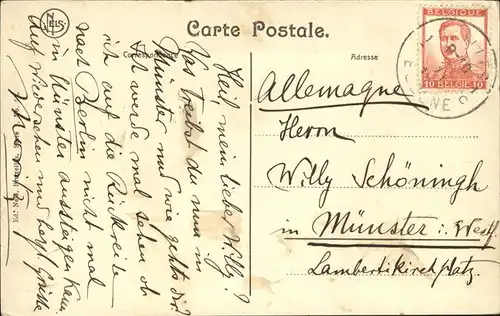 Carte Postale.
Correspondance
Adresse
BELGIQUE
10 BELGIË 10
Heil, mein lieber Willy!
Was treibst du nun in
Münster und wie geht's dir?
Ich werde mal sehen ob
ich auf die Rückreise
nach Berlin nicht mal
in Münster aussteigen kann.
Auf Wiedersehen und herzl. Grüsse
Allemagne
Herrn
Willy Schöningh
in Münster i. Westf.
Lambertikirchplatz.